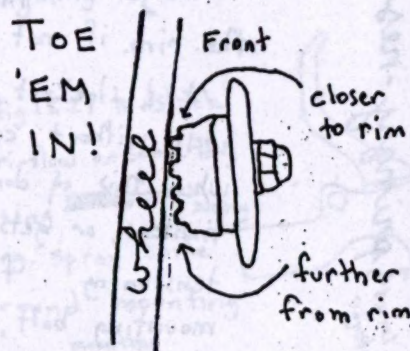 TOE
'EM
IN!
Front
closer
to rim
wheel
further
from rim